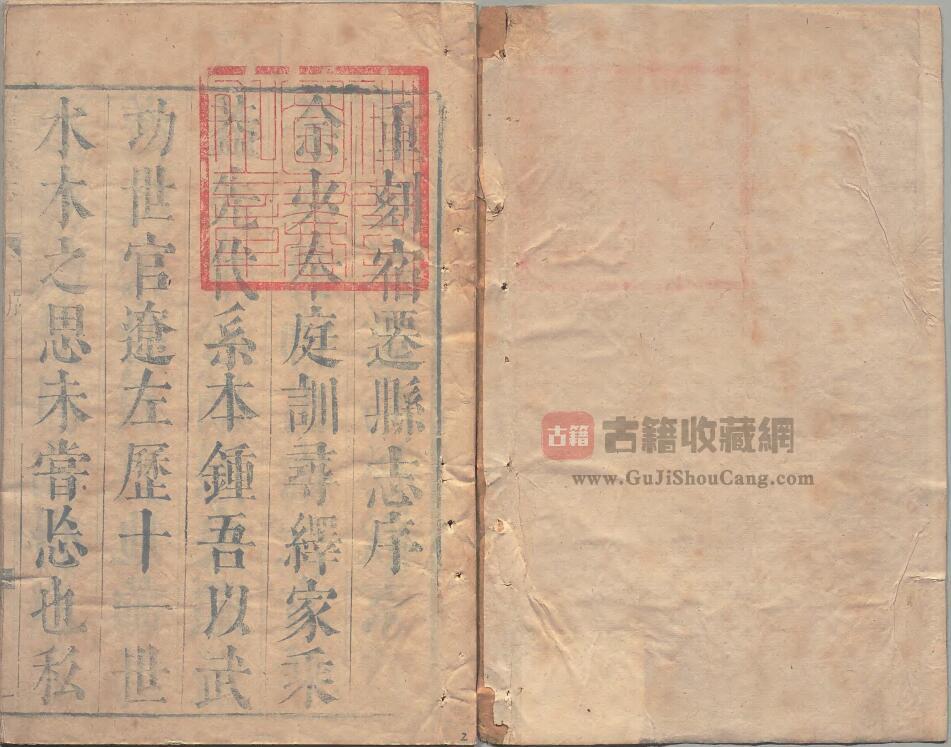 重刻宿遷縣志序
余奉庭訓尋繹家乘
先代系本鍾吾以武
功世官遼左歷十一世
水木之思未嘗忘也私
2
古籍
古籍收藏網
www.GuJiShouCang.com